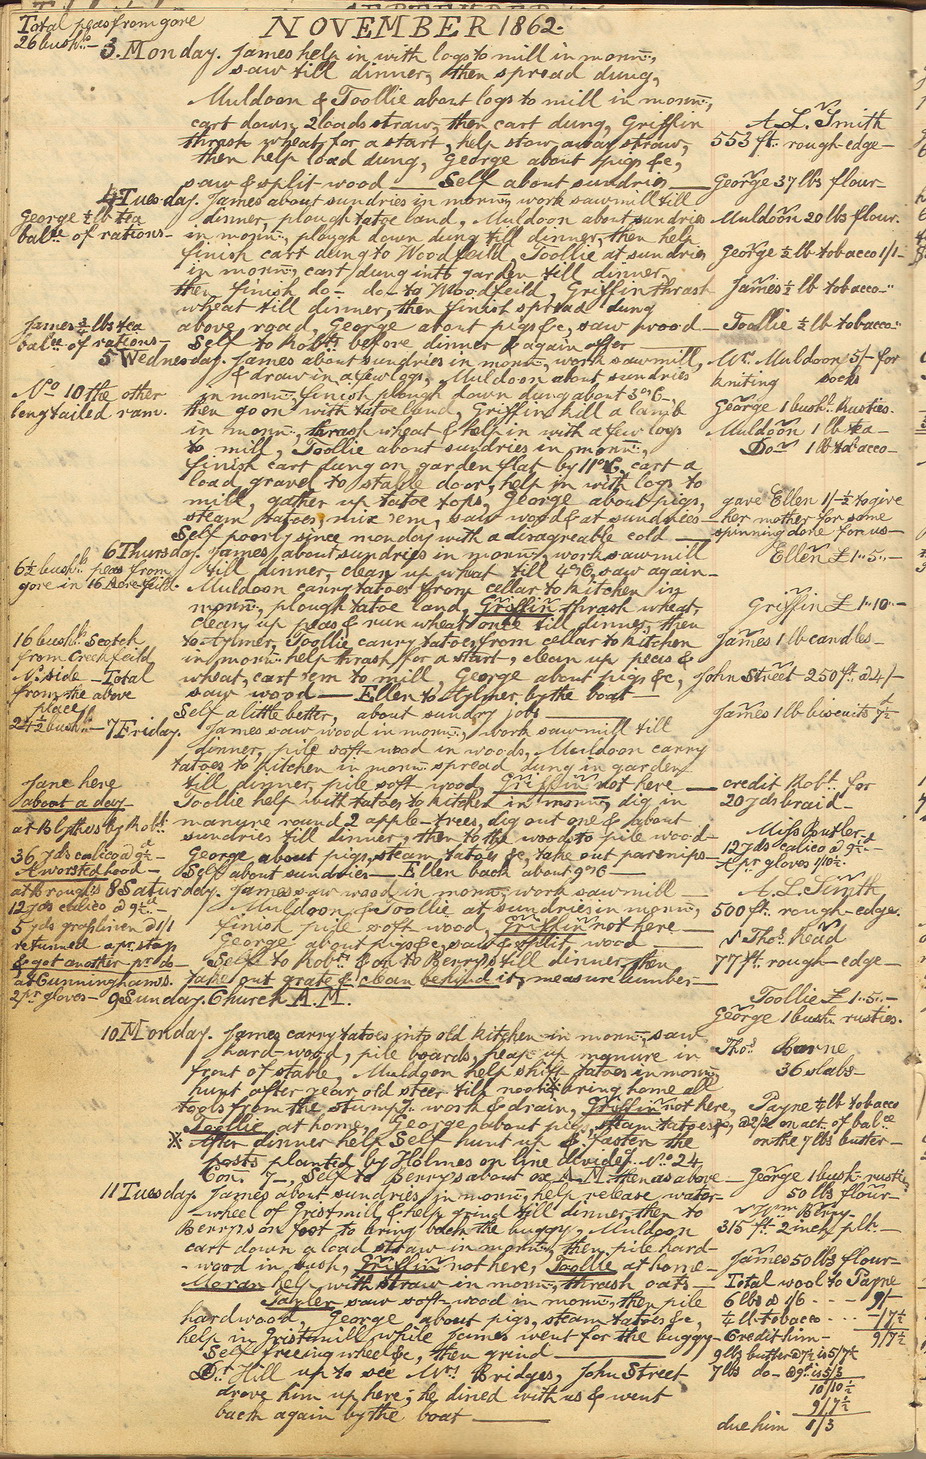 NOVEMBER 1862.
Total peas from gore
26 bush.ls —
3. Monday. James help in with logs to mill in morn.g,
saw till dinner, then spread dung,
Muldoon & Toollie about logs to mill in morn.g,
cart down 2 loads straw, then cart dung, Griffin
thrash wheat, for a start, help stow away straw,
then help load dung, George about pigs &c,
saw & split wood — Self about sundries —
A. L. Smith
553 ft. rough-edge —
George 37 lbs flour —
4 Tuesday. James about sundries in morn.g, work sawmill till
dinner, plough tatoe land, Muldoon about sundries
in morn.g, plough down dung till dinner, then help
finish cart dung to Woodfeild, Toollie at sundries
in morn.g, cart dung into garden till dinner,
then finish do — do — to Woodfeild, Griffin thrash
wheat till dinner, then finish spread dung
above road, George about pigs &c, saw wood —
Self to Robts before dinner & again after —
George ½ lb tea
bal.ce of rations —
Muldoon 20 lbs flour.
George ½ lb tobacco 1/1 —
James ½ lb tobacco —
Toollie ½ lb tobacco —
James ½ lbs tea
bal.ce of rations —
5 Wednesday. James about sundries in morn.g, work sawmill,
& draw in a few logs, Muldoon about sundries
in morn.g, finish plough down dung about
then go on with tatoe land, Griffin kill a lamb
in morn.g, thrash wheat & help in with a few logs
to mill, Toollie about sundries in morn.g,
finish cart dung on garden flat by 11 cart a
load gravel to stable door, help in with logs to
mill, gather up tatoe tops, George about pigs,
steam tatoes, mix 'em, saw wood & at sundries —
Self poorly since monday with a disagreable cold —
No 10 the other
longtailed ram.
Mrs. Muldoon 5/- for
kniting socks
George 1 bush.l rusties.
Muldoon 1 lb tea —
Do — 1 lb tobacco —
gave Ellen 1/-½ to give
her mother for some
spinning done for us —
Ellen £1..5..—
6 Thursday. James about sundries in morn.g, work sawmill
till dinner, clean up wheat till 4 saw again —
Muldoon carry tatoes from cellar to kitchen in
morn.g, plough tatoe land, Griffin thrash wheat,
clean up peas & run wheat once till dinner, then
to Aylmer, Toollie carry tatoes from cellar to kitchen
in morn.g help thrash for a start, clean up peas &
wheat, cart 'em to mill, George about pigs &c,
saw wood — Ellen to Aylmer by the boat —
Self a little better, about sundry jobs —
6½ bush.ls peas from
gore in 16 Acre feild.
16 bush.ls Scotch
from Creek feild
N. side — Total
from the above
place
24½ bush.ls —
Griffin £1..10..—
James 1 lb candles —
John Street 250 ft. @ 4/—
James 1 lb biscuits 7½d
7 Friday. James saw wood in morn.g, work sawmill till
dinner, pile soft-wood in woods, Muldoon carry
tatoes to kitchen in morn.g spread dung in garden
till dinner, pile soft wood, Griffin not here —
Toollie help with tatoes to kitchen in morn.g, dig in
manure round 2 apple-trees, dig out one & about
sundries till dinner, then to the woods to pile wood —
George about pigs, steam tatoes &c, take out parsnips —
Self about sundries — Ellen back about 9
Jane here
about a day —
at Blythes by Robt
36 yds calico @ 9½d —
A worsted hood —
credit Robt. for
20 yds braid —
Miss Butler —
12 yds calico @ 9½d —
A pr gloves 1/10½ —
8 Saturday. James saw wood in morn.g work sawmill —
Muldoon & Toollie at sundries in morn.g,
finish pile soft wood, Griffin not here —
George about pigs &c, saw & split wood —
Self to Robts & on to Berry's till dinner, then
take out grate & clean behind it, measure lumber —
at Brough's
12 yds calico @ 9½d —
5 yds @ 1/1
returned a pr. stays
& got another pr. do —
at Cunninghams.
2 pr gloves —
A. L. Smith
500 ft. rough-edge.
Thos. Read
77 ft. rough-edge —
9 Sunday. Church A.M.
Toollie £1..5..—
George 1 bush. rusties.
10 Monday. James carry tatoes into old kitchen in morn.g, saw
hard-wood, pile boards, heap up manure in
front of stable, Muldoon help shift tatoes in morn.g
hunt after year old steer till noon ※ bring home all
tools from the stump.g work & drain, Griffin not here,
Toollie at home, George about pigs, steam tatoes &c,
※ After dinner help Self hunt up & fasten the
posts planted by Holmes on line divide.g No 24
Con. 7 —, Self to Berry's about ox A.M. then as above —
Thos. Barne
36 slabs —
Payne ¼ lb tobacco
@ 2/2 on act. of bal.ce
on the 7 lbs butter —
11 Tuesday. James about sundries in morn.g, help release water-
wheel of Gristmill & help grind till dinner, then to
Berry's on foot to bring back the buggy, Muldoon
cart down a load straw in morn.g, then pile hard-
wood in bush, Griffin not here, Toollie at home —
Moran help with straw in morn.g, thrash oats —
Tayler saw soft-wood in morn.g, then pile
hardwood, George about pigs, steam tatoes &c,
help in Gristmill while James went for the buggy —
Self freeing wheel &c, then grind —
Dr. Hill up to see Mrs. Bridges, John Street
drove him up here; he dined with us & went
back again by the boat —
George 1 bush. rusties
50 lbs flour —
Wm Berry
315 ft. 2 inch plk. —
James 50 lbs flour —
Total wool to Payne
6 lbs @ 1/6 - - - 9/—
¼ lb tobacco - - - - /7½
Credit him — 9/7½
9 lbs butter @ 7½ is 5/7½
7 lbs do — @ 9d is 5/3
10/10½
9/7½
due him 1/3